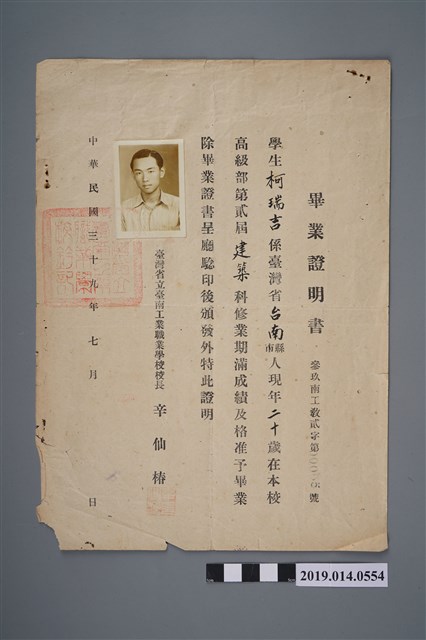 畢業證明書
參玖南工敎貳字第號
學生柯瑞吉係臺灣省台南縣市人現年二十歲在本校
高級部第貳屆建築科修業期滿成績及格准予畢業
除畢業證書呈廳驗印後頒發外特此證明
臺灣省立臺南工業職業學校校長 辛仙椿
中華民國三十九年七月 日
2019.014.0554